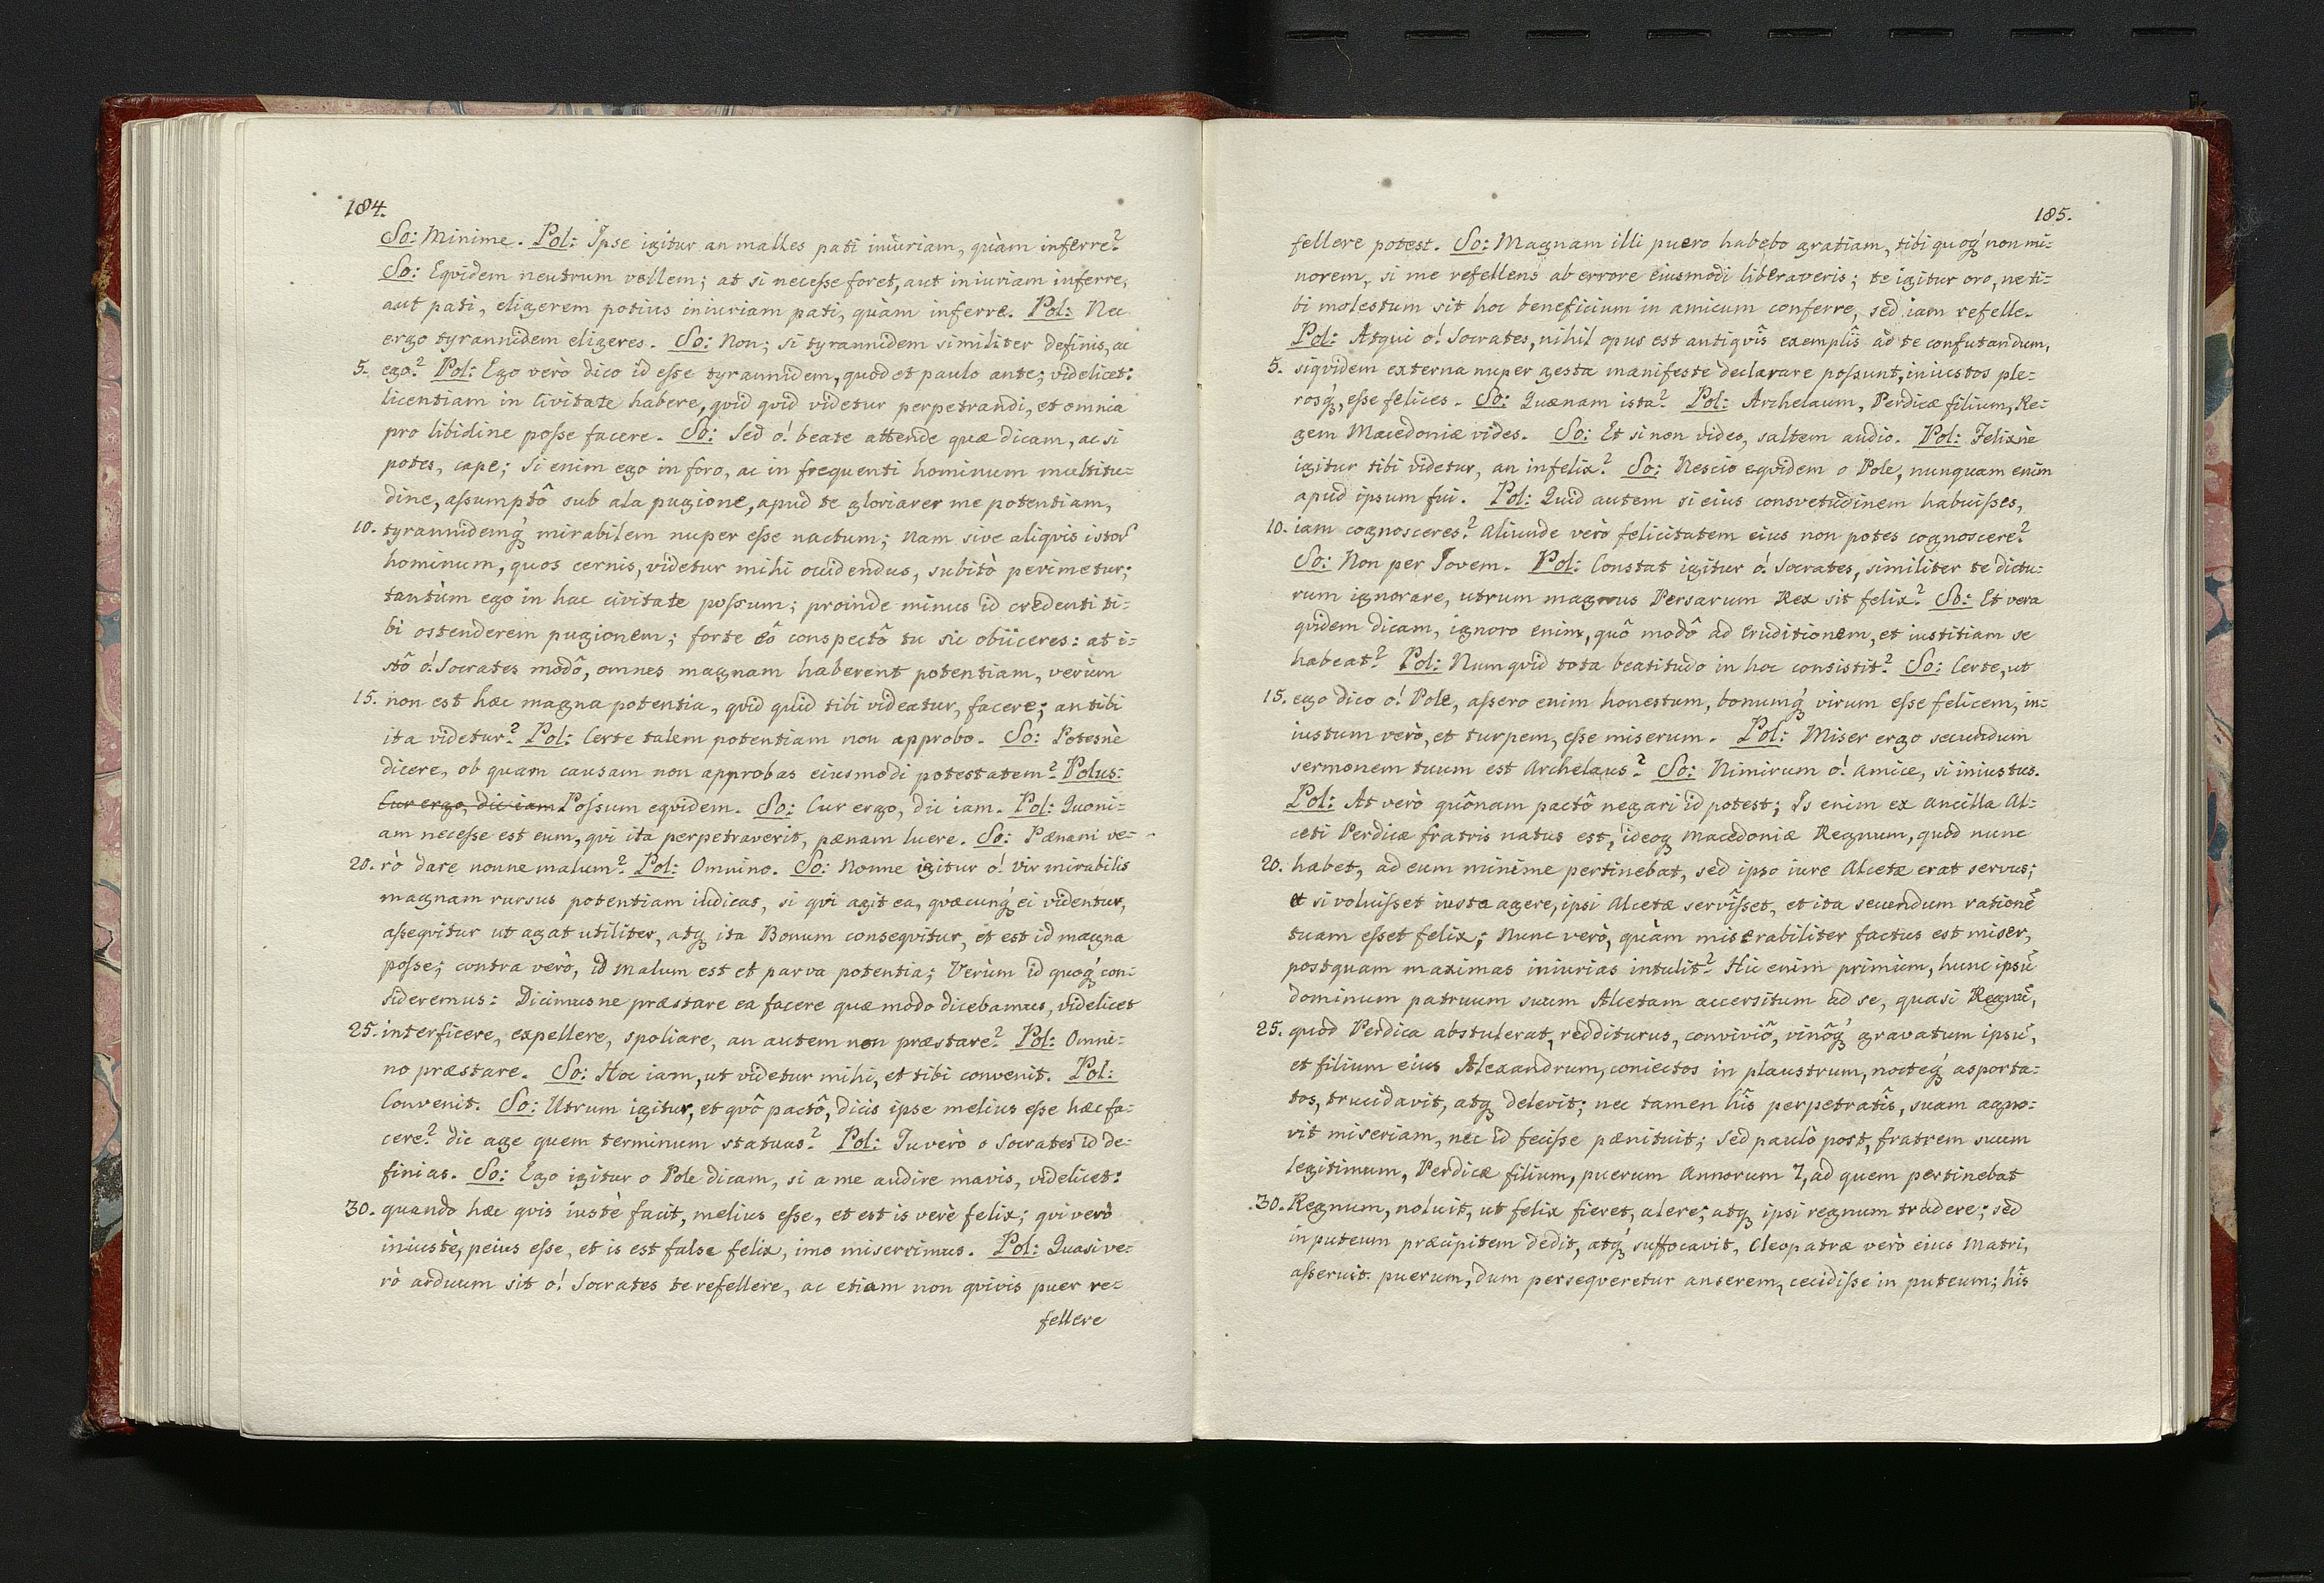 184.
So: Minime. Pol: Ipse igitur an malles pati iniuriam, quàm inferre?
So: Eqvidem neutrum vellem; at si necesse foret, aut iniuriam inferre,
aut pati, eligerem potius iniuriam pati, quàm inferre. Pol: Nec
ergo tyrannidem eligeres. So: Non; si tyrannidem similiter definis, ac
5. ego? Pol: Ego verò dico id esse tyrannidem, quod et paulo ante; videlicet:
licentiam in Civitate habere, qvid qvid videtur perpetrandi, et omnia
pro libidine posse facere. So: Sed o! beate attende quæ dicam, ac si
potes, cape; Si enim ego in foro, ac in frequenti hominum multitu-
dine, assumptô sub ala pugione, apud te gloriarer me potentiam,
10. tyrannidemq́ mirabilem nuper esse nactum; nam sive aliqvis istor̃
hominum, quos cernis, videtur mihi occidendus, subitò perimetur;
tantùm ego in hac civitate possum; proinde minus id credenti ti-
bi ostenderem pugionem; forte eô conspectô tu sic obiiceres: at i-
stô o! Socrates modô, omnes magnam haberent potentiam, verùm
15. non est hæc magna potentia, qvid quid tibi videatur, facere; an tibi
ita videtur? Pol: Certe talem potentiam non approbo. So: Potesnè
dicere, ob quam causam non approbas eiusmodi potestatem? Polus:
Cur ergo, dic iam Possum eqvidem. So: Cur ergo, dic iam. Pol: Quoni-
am necesse est eum, qvi ita perpetraverit, pænam luere. So: Pænam ve-
20. rò dare nonne malum? Pol: Omnino. So: Nonne igitur o! vir mirabilis
magnam rursus potentiam iudicas, si qvi agit ea, qvæcunq́ ei videntur,
asseqvitur ut agat utiliter, atq ita Bonum conseqvitur, et est id magna
posse; contra verò, id malum est et parva potentia; Verùm id quoq́ con-
sideremus: Dicimusne præstare ea facere quæ modo dicebamus, videlicet
25. interficere, expellere, spoliare, an autem non præstare? Pol: Omni-
no præstare. So: Hoc iam, ut videtur mihi, et tibi convenit. Pol:
Convenit. So: Utrum igitur, et qvô pactô, dicis ipse melius esse hæc fa-
cere? dic age quem terminum statuas? Pol: Tu verò o Socrates id de-
finias. So: Ego igitur o Pole dicam, si a me audire mavis, videlicet:
30. quando hæc qvis iustè facit, melius esse, et est is verè felix; qvi verò
iniustè, peius esse, et is est false felix, imo miserrimus. Pol: Quasi ve-
rò arduum sit o! Socrates te refellere, ac etiam non qvivis puer re-
fellere
185.
fellere potest. So: Magnam illi puero habebo gratiam, tibi quoq́ non mi-
norem, si me refellens ab errore eiusmodi liberaveris; te igitur oro, ne ti-
bi molestum sit hoc beneficium in amicum conferre, sed iam refelle.
Pol: Atqui o! Socrates, nihil opus est antiqvîs exemplîs ad te confutandum,
5. siqvidem externa nuper gesta manifestè declarare possunt, iniustos ple-
rosq́, esse felices. So: Quænam ista? Pol: Archelaum, Perdicæ filium, Re-
gem Macedoniæ vides. So: Et si non video, saltem audio. Pol: Felixnè
igitur tibi videtur, an infelix? So: Nescio eqvidem o Pole, nunquam enim
apud ipsum fui. Pol: Quid autem si eius consvetudinem habuisses,
10. iam cognosceres? aliunde verò felicitatem eius non potes cognoscere?
So: Non per Jovem. Pol: Constat igitur o! Socrates, similiter te dictu-
rum ignorare, utrum magnus Persarum Rex sit felix? So: Et vera
qvidem dicam, ignoro enim, quô modô ad eruditionem, et iustitiam se
habeat? Pol: Numqvid tota beatitudo in hoc consistit? So: Certe, ut
15. ego dico o! Pole, assero enim honestum, bonumq́ virum esse felicem, in-
iustum verò, et turpem, esse miserum. Pol: Miser ergo secundum
sermonem tuum est Archelaus? So: Nimirum o! amice, si iniustus.
Pol: At verò quônam pactô negari id potest; Is enim ex ancilla Al-
ceti Perdicæ fratris natus est, ideoq Macedoniæ Regnum, quod nunc
20. habet, ad eum minime pertinebat, sed ipso iure Alcetæ erat servus;
et si voluisset iuste agere, ipsi Alcetæ servîsset, et ita secundum rationẽ
tuam esset felix; Nunc verò, quàm miserabiliter factus est miser,
postquam maximas iniurias intulit? Hic enim primùm, hunc ipsũ
dominum patruum suum Alcetam accersitum ad se, quasi Regnũ,
25. quod Perdica abstulerat, redditurus, conviviô, vinôq́ gravatum ipsũ,
et filium eius Alexandrum, coniectos in plaustrum, nocteq́ asporta-
tos, trucidavit, atq delevit; nec tamen hîs perpetratîs, suam agno-
vit miseriam, nec id fecisse pænituit; Sed paulò post, fratrem suum
legitimum, Perdicæ filium, puerum annorum 7, ad quem pertinebat
30. Regnum, noluit, ut felix fieret, alere; atq ipsi regnum tradere; sed
in puteum præcipitem dedit, atq́ suffocavit, Cleopatræ verò eius Matri,
asseruit puerum, dum perseqveretur anserem, cecidisse in puteum; hîs